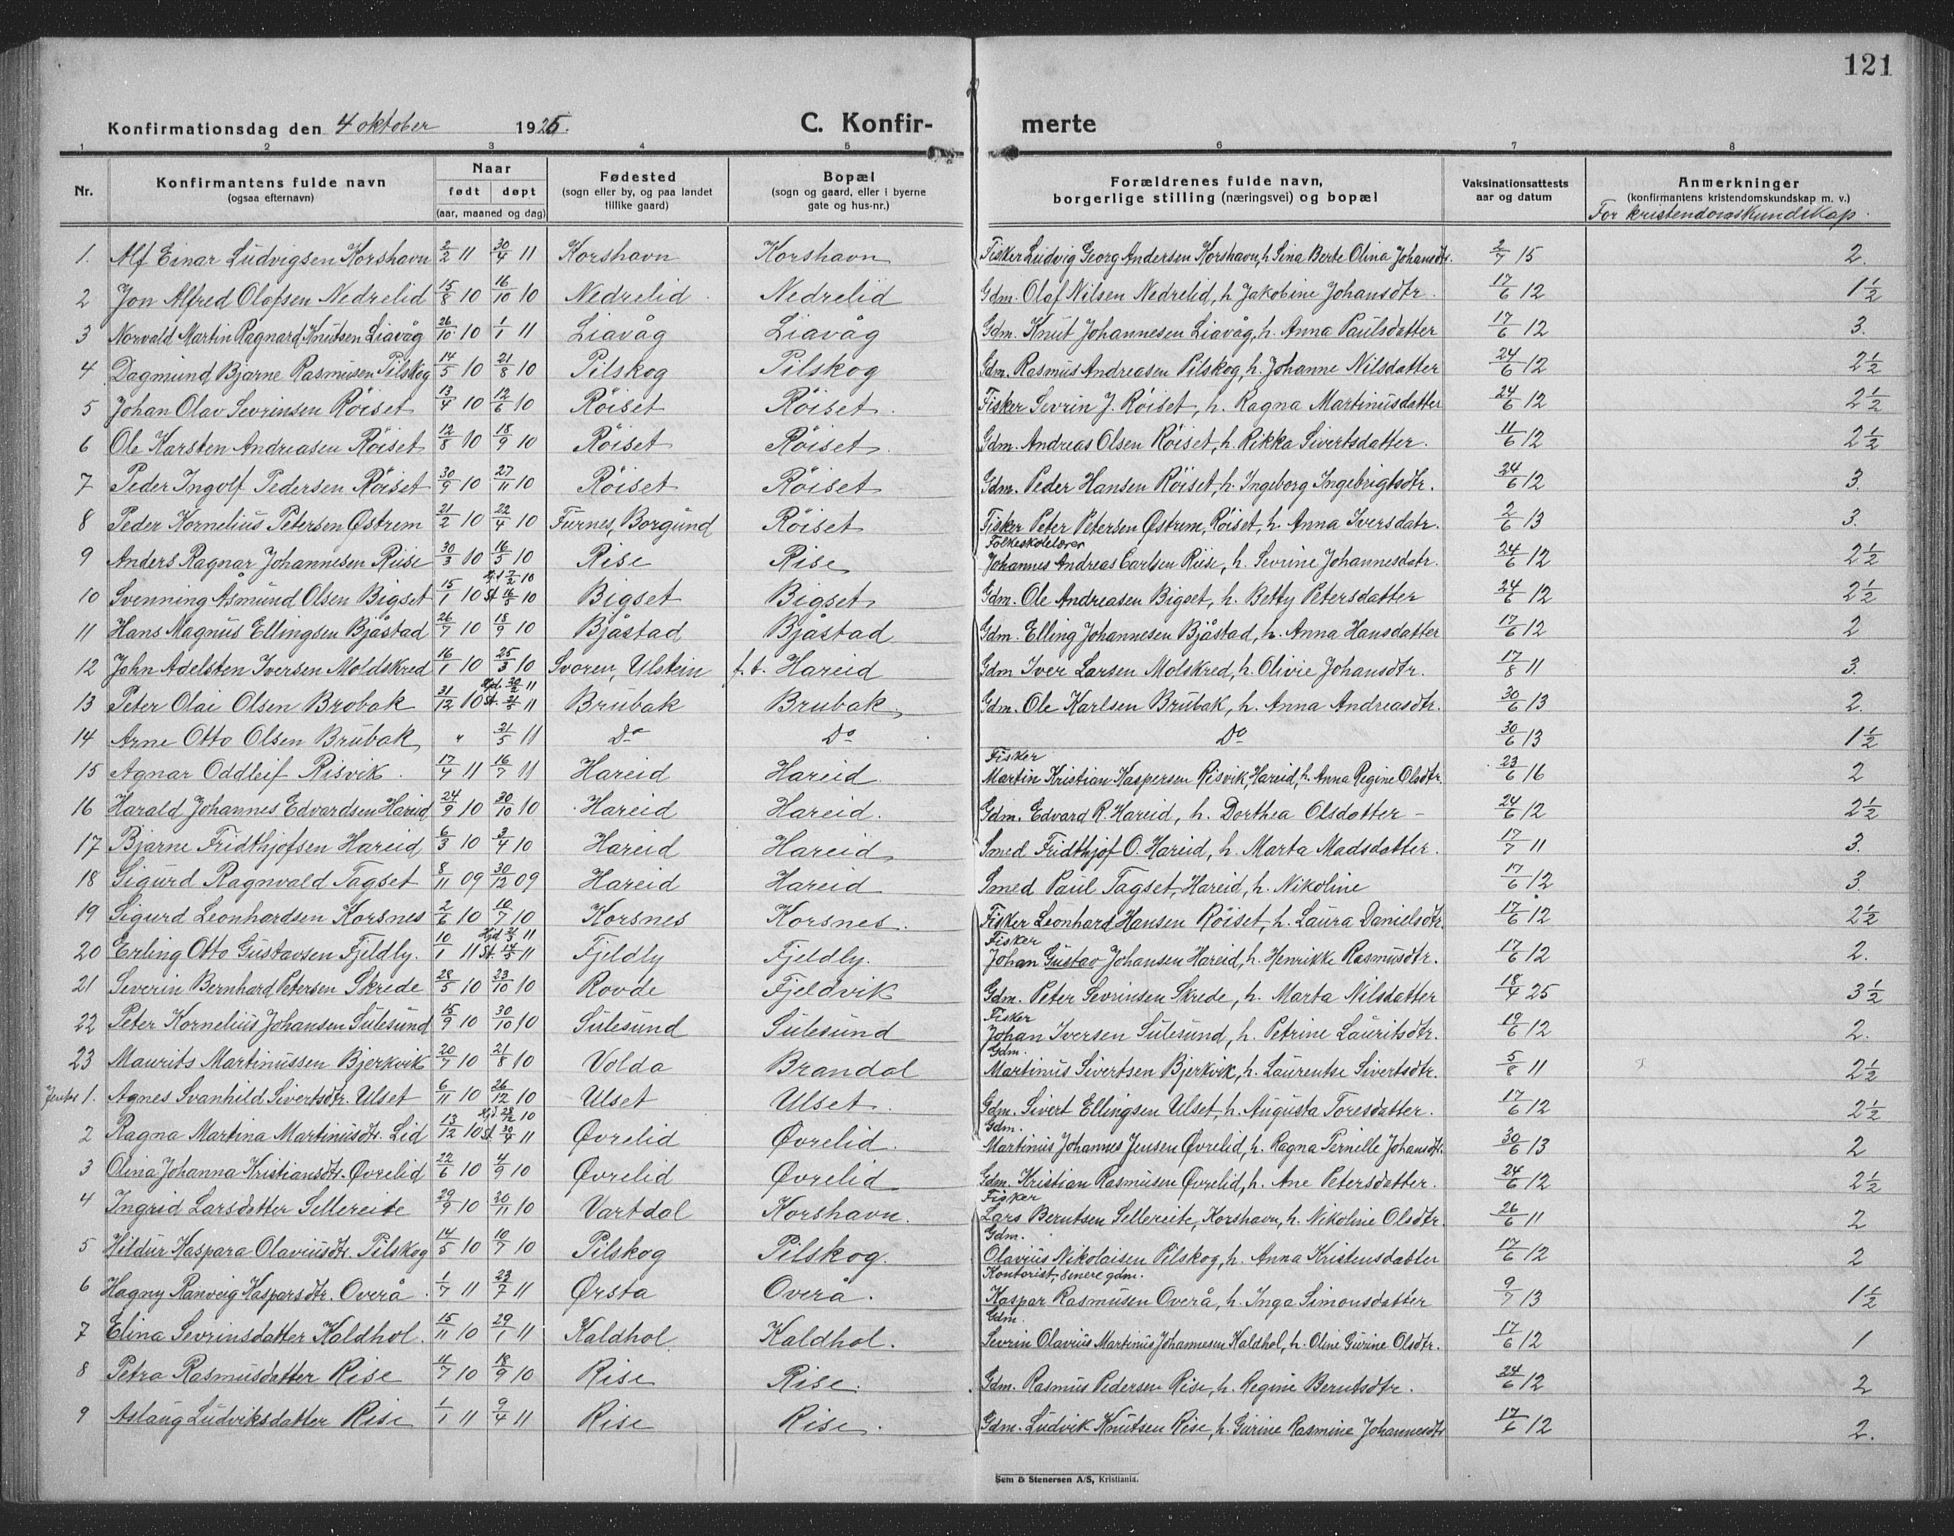 121
Konfirmationsdag den 4 oktober 1925. C. Konfir- merte
1 2 3 4 5 6 7 8
Nr. Konfirmantens fulde navn (ogsaa efternavn) Naar født døpt (aar, maaned og dag) Fødested (sogn eller by, og paa landet tillike gaard) Bopæl (sogn og gaard, eller i byerne gate og hus-nr.) Forældrenes fulde navn, borgerlige stilling (næringsvei) og bopæl Vaksinationsattests aar og datum Anmerkninger (konfirmantens kristendomskundskap m. v.)
For kristendomskundskap.
1. Alf Einar Ludvigsen Korshavn 2/2 11 30/4 11 Korshavn Korshavn Fisker Ludvig Georg Andersen Korshavn, h. Sina Berte Olina Johansdtr. 2/7 15 2.
2 Jon Alfred Olafsen Nedrelid 15/8 10 16/10 10 Nedrelid Nedrelid Gdm. Olaf Nilsen Nedrelid, h. Jakobine Johansdtr. 17/6 12 1 1/2
3 Norvald Martin Ragnard Knutsen Liavåg 26/10 10 1/1 11 Liavåg Liavåg Gdm. Knut Johannesen Liavåg, h. Anna Paulsdatter 17/6 12 3.
4 Dagmund Bjarne Rasmusen Pilskog 14/5 10 21/8 10 Pilskog Pilskog Gdm. Rasmus Andreasen Pilskog, h. Johanne Nilsdatter 24/6 12 2 1/2
5 Johan Olav Sevrinsen Röiset 13/4 10 12/6 10 Röiset Röiset. Fisker Sevrin J. Röiset, h. Ragna Martinusdatter 24/6 12 2 1/2
6 Ole Karsten Andreasen Röiset 12/8 10 18/9 10 Röiset Röiset. Gdm. Andreas Olsen Röiset, h. Rikka Sivertsdatter. 11/6 12 2 1/2
7 Peder Ingolf Pedersen Röiset 30/9 10 27/11 10 Röiset Röiset Gdm. Peder Hansen Röiset, h. Ingeborg Ingebrigtsdtr. 24/6 12 3.
8 Peder Kornelius Petersen Østrem 21/2 10 22/4 10 Furnes, Borgund Röiset Fisker Peter Petersen Østrem, Röiset, h. Anna Iversdatr. 2/6 13 3.
9 Anders Ragnar Johannesen Riise 30/3 10 16/5 10 Rise Rise Folkeskolelærer Johannes Andreas Carlsen Riise, h. Sevrine Johannesdatr. 24/6 12 2 1/2
10 Svenning Åsmund Olsen Bigset 15/1 10 Hjd 7/2 10 St. 16/5 10 Bigset Bigset Gdm. Ole Andreasen Bigset, h. Betty Petersdatter 24/6 12 2 1/2
11 Hans Magnus Ellingsen Bjåstad 26/7 10 18/9 10 Bjåstad Bjåstad Gdm. Elling Johannesen Bjåstad, h. Anna Hansdatter 17/6 12 2
12 John Adelsten Iversen Moldskred 16/1 10 25/3 10 Svoren, Ulstein f.t. Hareid Gdm Iver Larsen Molskred, h. Olivie Johansdtr. 17/8 11 3.
13 Peter Olai Olsen Brobak 31/12 10 Hjd. 20/2 11 St. 21/5 11 Brubak Brubak. Gdm. Ole Karlsen Brubak, h. Anna Andreasdtr. 30/6 13 2.
14 Arne Otto Olsen Brubak " 21/5 11 Do Do Do 30/6 13 1 1/2
15 Agnar Oddleif Risvik. 17/4 11 16/7 11 Hareid Hareid. Fisker Martin Kristian Kaspersen Risvik, Hareid, h. Anna Regine Olsdtr. 23/6 16 2
16 Harald Johannes Edvardsen Hareid 24/9 10 30/10 10 Hareid Hareid. Gdm. Edvard R. Hareid, h. Dorthea Olsdatter - 24/6 12 2 1/2
17 Bjarne Fridthjofsen Hareid 6/3 10 3/4 10 Hareid Hareid Smed Fridthjof O. Hareid, h. Marta Madsdatter. 17/7 11 3.
18 Sigurd Ragnvald Tagset 8/11 09 30/12 09 Hareid Hareid Smed Paul Tagset, Hareid, h. Nikoline 17/6 12 3.
19 Sigurd Leonhardsen Korsnes 2/6 10 10/7 10 Korsnes Korsnes. Fisker Leonhard Hansen Röiset, h. Laura Danielsdtr. 17/6 12 2 1/2
20 Erling Otto Gustavsen Fjeldly. 10/1 11 Hjd 2/3 11 St. 14/5 11 Fjeldly Fjeldly. Fisker Johan Gustav Johansen Hareid, h. Henrikke Rasmusdtr. 17/6 12 2.
21 Severin Bernhard Petersen Skrede 28/5 10 23/10 10 Rovde Fjeldvik Gdm. Peter Sevrinsen Skrede, h. Marta Nilsdatter 18/4 25 3 1/2
22 Peter Kornelius Johansen Sulesund 15/9 10 30/10 10 Sulesund Sulesund Fisker Johan Iversen Sulesund, h. Petrine Lauritsdtr. 19/6 12 2.
23 Maurits Martinussen Bjerkvik 20/7 10 21/8 10 Volda Brandal Gdm. Martinus Sivertsen Bjerkvik, h. Laurentse Sivertsdtr. 5/8 11 2 1/2
Jenter 1. Agnes Svanhild Sivertsdtr. Ulset 6/11 10 26/12 10 Ulset Ulset. Gdm. Sivert Ellingsen Ulset, h. Augusta Toresdatter. 17/6 12 2 1/2
2 Ragna Martina Martinusdtr. Lid 13/12 10 Hjd 28/12 10 St. 30/4 11 Øvrelid Øvrelid. Gdm. Martinus Johannes Jensen Øvrelid, h. Ragna Pernille Johansdtr. 30/6 13 2
3 Olina Johanna Kristiansdtr. Øvrelid 22/6 10 4/9 10 Øvrelid Øvrelid Gdm. Kristian Rasmusen Øvrelid, h. Ane Petersdatter. 24/6 12 2 1/2
4 Ingrid Larsdatter Sellereite 29/9 10 20/11 10 Vartdal Korshavn. Fisker Lars Berntsen Sellereite, Korshavn, h. Nikoline Olsdtr. 26/6 11 2
5 Hildur Kaspara Olaviusdtr. Pilskog 14/5 10 10/7 10 Pilskog Pilskog. Gdm. Olavius Nikolaisen Pilskog, h. Anna Kristensdatter 17/6 12 2
6 Hagny Ranveig Kaspersdtr. Overå 1/7 11 23/7 11 Ørsta Overå. Kontorist, senere gdm. Kaspar Rasmusen Overå, h. Inga Simonsdatter 9/7 13 1 1/2
7 Elina Sevrinsdatter Kaldhol. 15/11 10 29/1 11 Kaldhol Kaldhol. Gdm. Sevrin Olavius Martinus Johannesen Kaldhol, h. Oline Gurine Olsdtr. 17/6 12 1
8 Petra Rasmusdatter Rise 11/7 10 18/9 10 Rise Rise. Gdm. Rasmus Pedersen Rise, h. Regine Berntsdtr. 24/6 12 2
9 Aslaug Ludviksdatter Rise 1/1 11 9/4 11 Rise Rise. Gdm. Ludvik Knutsen Rise, h. Gurine Rasmine Johannesdtr 17/6 12 2.
Sem & Stenersen A/S, Kristiania.